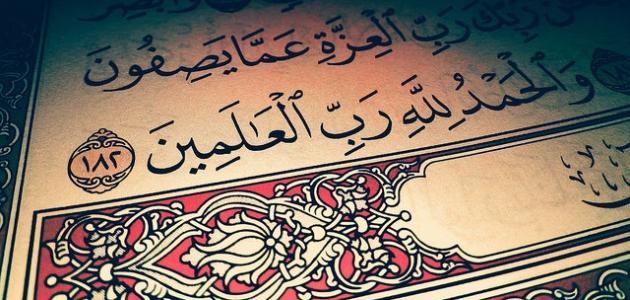 رَبِّكَ رَبِّ ٱلْعِزَّةِ عَمَّا يَصِفُونَ
وَٱلْحَمْدُ لِلَّهِ رَبِّ ٱلْعَٰلَمِينَ ١٨٢